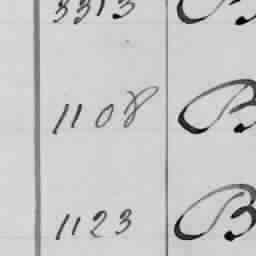 3313 B
1108 B
1123 B